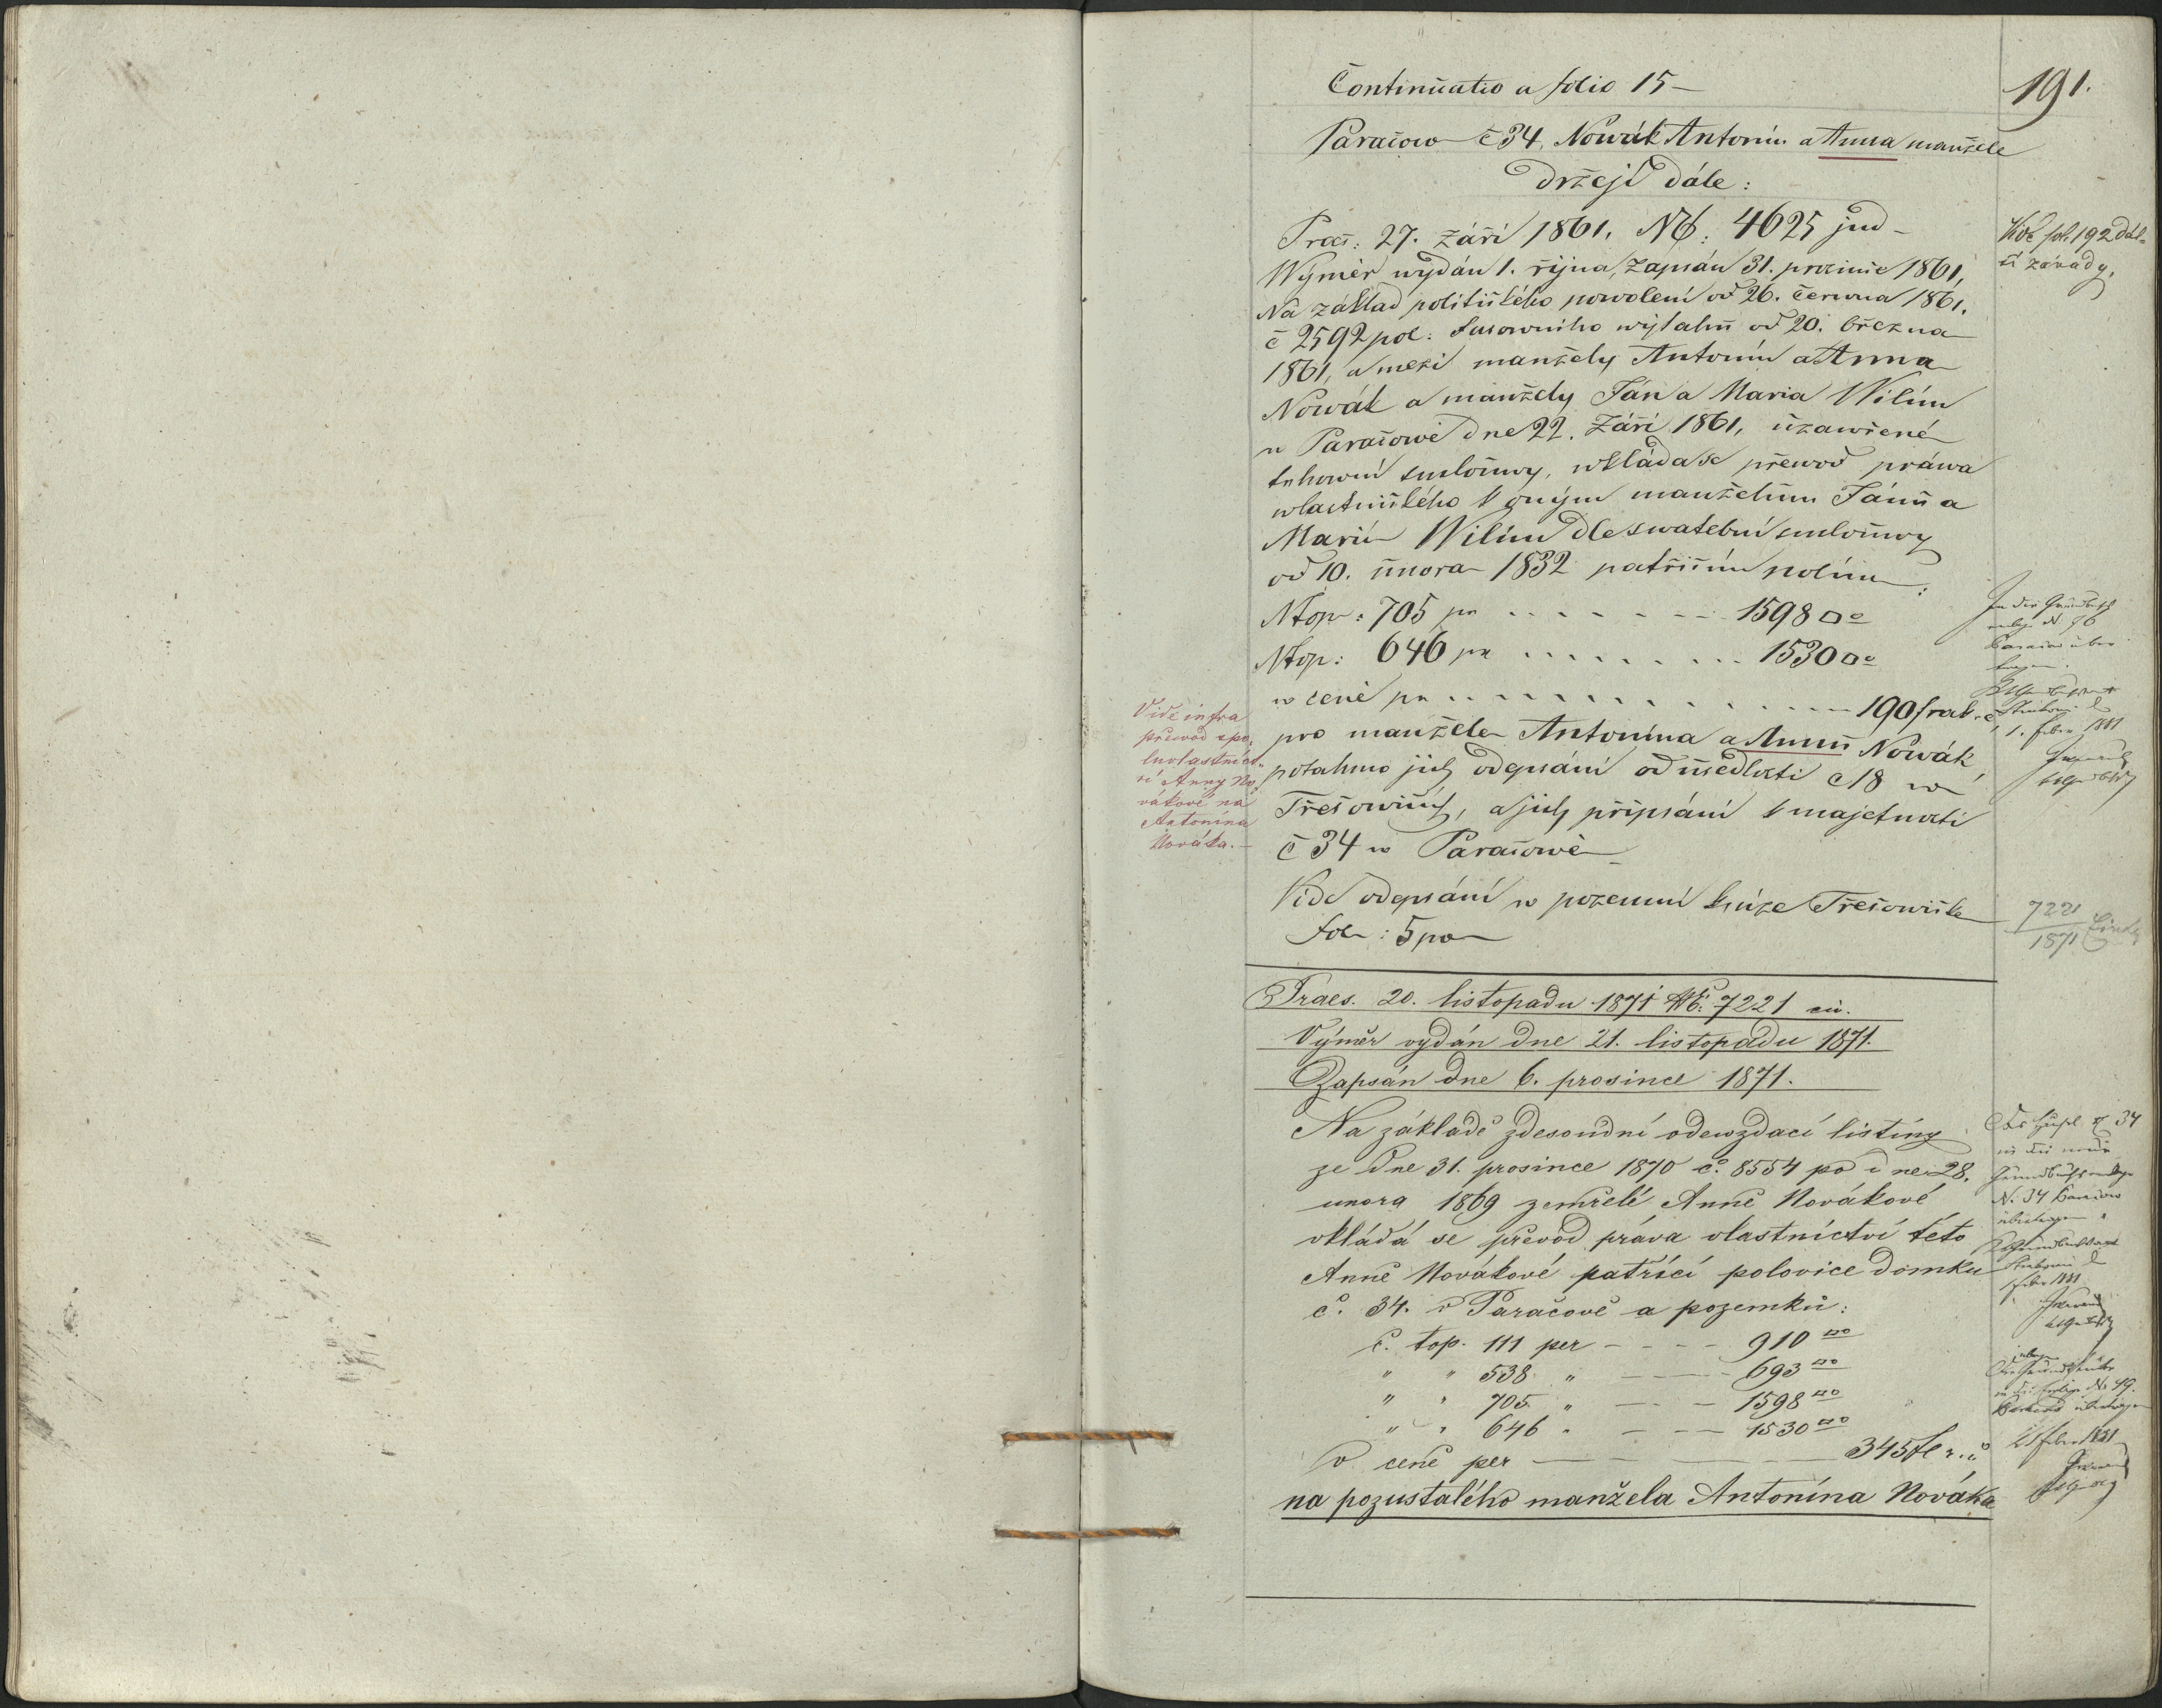 Continuatio a folio 15 –
191.
Paračow č 34, Nowák Antonín a Anna manžele
držejí dále:
Praes: 27. Září 1861. NE: 4625 jud –
Wýměr wydán 1. října, zapsán 31. prosince 1861,
Na základ politického powolení od 26. Června 1861.
č 2592 pol: wýtahu od 20. března
1861, a mezi manžely Antonín a Anna
Nowák a manžely Ján a Maria Wilím
w Paračowě dne 22. Září 1861, uzawřené
trhowní smlouwy, wkládá se přewod práwa
wlastnického k oným manželům Jánu a
Marii Wilím dle swatební smlouwy
od 10. února 1832 patřičním polím:
Ntop: 705 pr 1598 □°
Ntop: 646 pr 1530 □°
w ceně pr 190 f rak. č,
pro manžele Antonína a Annu Nowák,
potahmo jich odepsání od usedlosti č 18 w
Třešowicích, a jich připsání k majetnosti
č 34 w Paračowě –
Vide odepsání w pozemní knize Třešowicke
fol: 5 po
Vide fol. 192 dal-
ší závady.
Vide infra
převod spo-
luvlastnict-
ví Anny No-
vákové na
Antonína
Nováka. –
7221
1871
Praes. 20. listopadu 1871 NE: 7221 civ.
Výměr vydán dne 21. listopadu 1871.
Zapsán dne 6. prosince 1871.
Na základě zdesoudní odevzdací listiny
ze dne 31. prosince 1870 č. 8554 po dne 28.
unora 1869 zemřelé Anně Novákové
vkládá se převod práva vlastnictví této
Anně Novákové patřící polovice domku
č. 34. v Paračově a pozemků:
č. top. 111 per – – – – 910 □°
" " 538 " – – – – 693 □°
" " 705 " – – – 1598 □°
" " 646 " – – – 1530 □°
v ceně per – – – 345 fl r. č
na pozustalého manžela Antonína Nováka
N. 34
1. Feber 1881